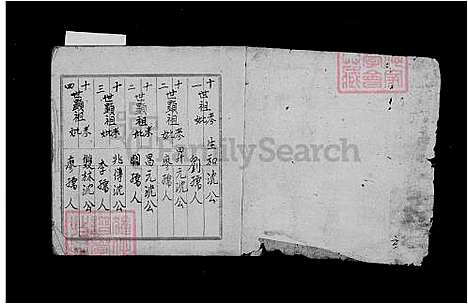 十一世祖考 生和沈公
妣 劉孺人
十二世顯祖考 昇元沈公
妣 廖孺人
十二世顯祖考 昌元沈公
妣 孺人
十三世顯祖考 兆傳沈公
妣 李孺人
十四世顯祖考 雙林沈公
妣 廖孺人
FamilySearch